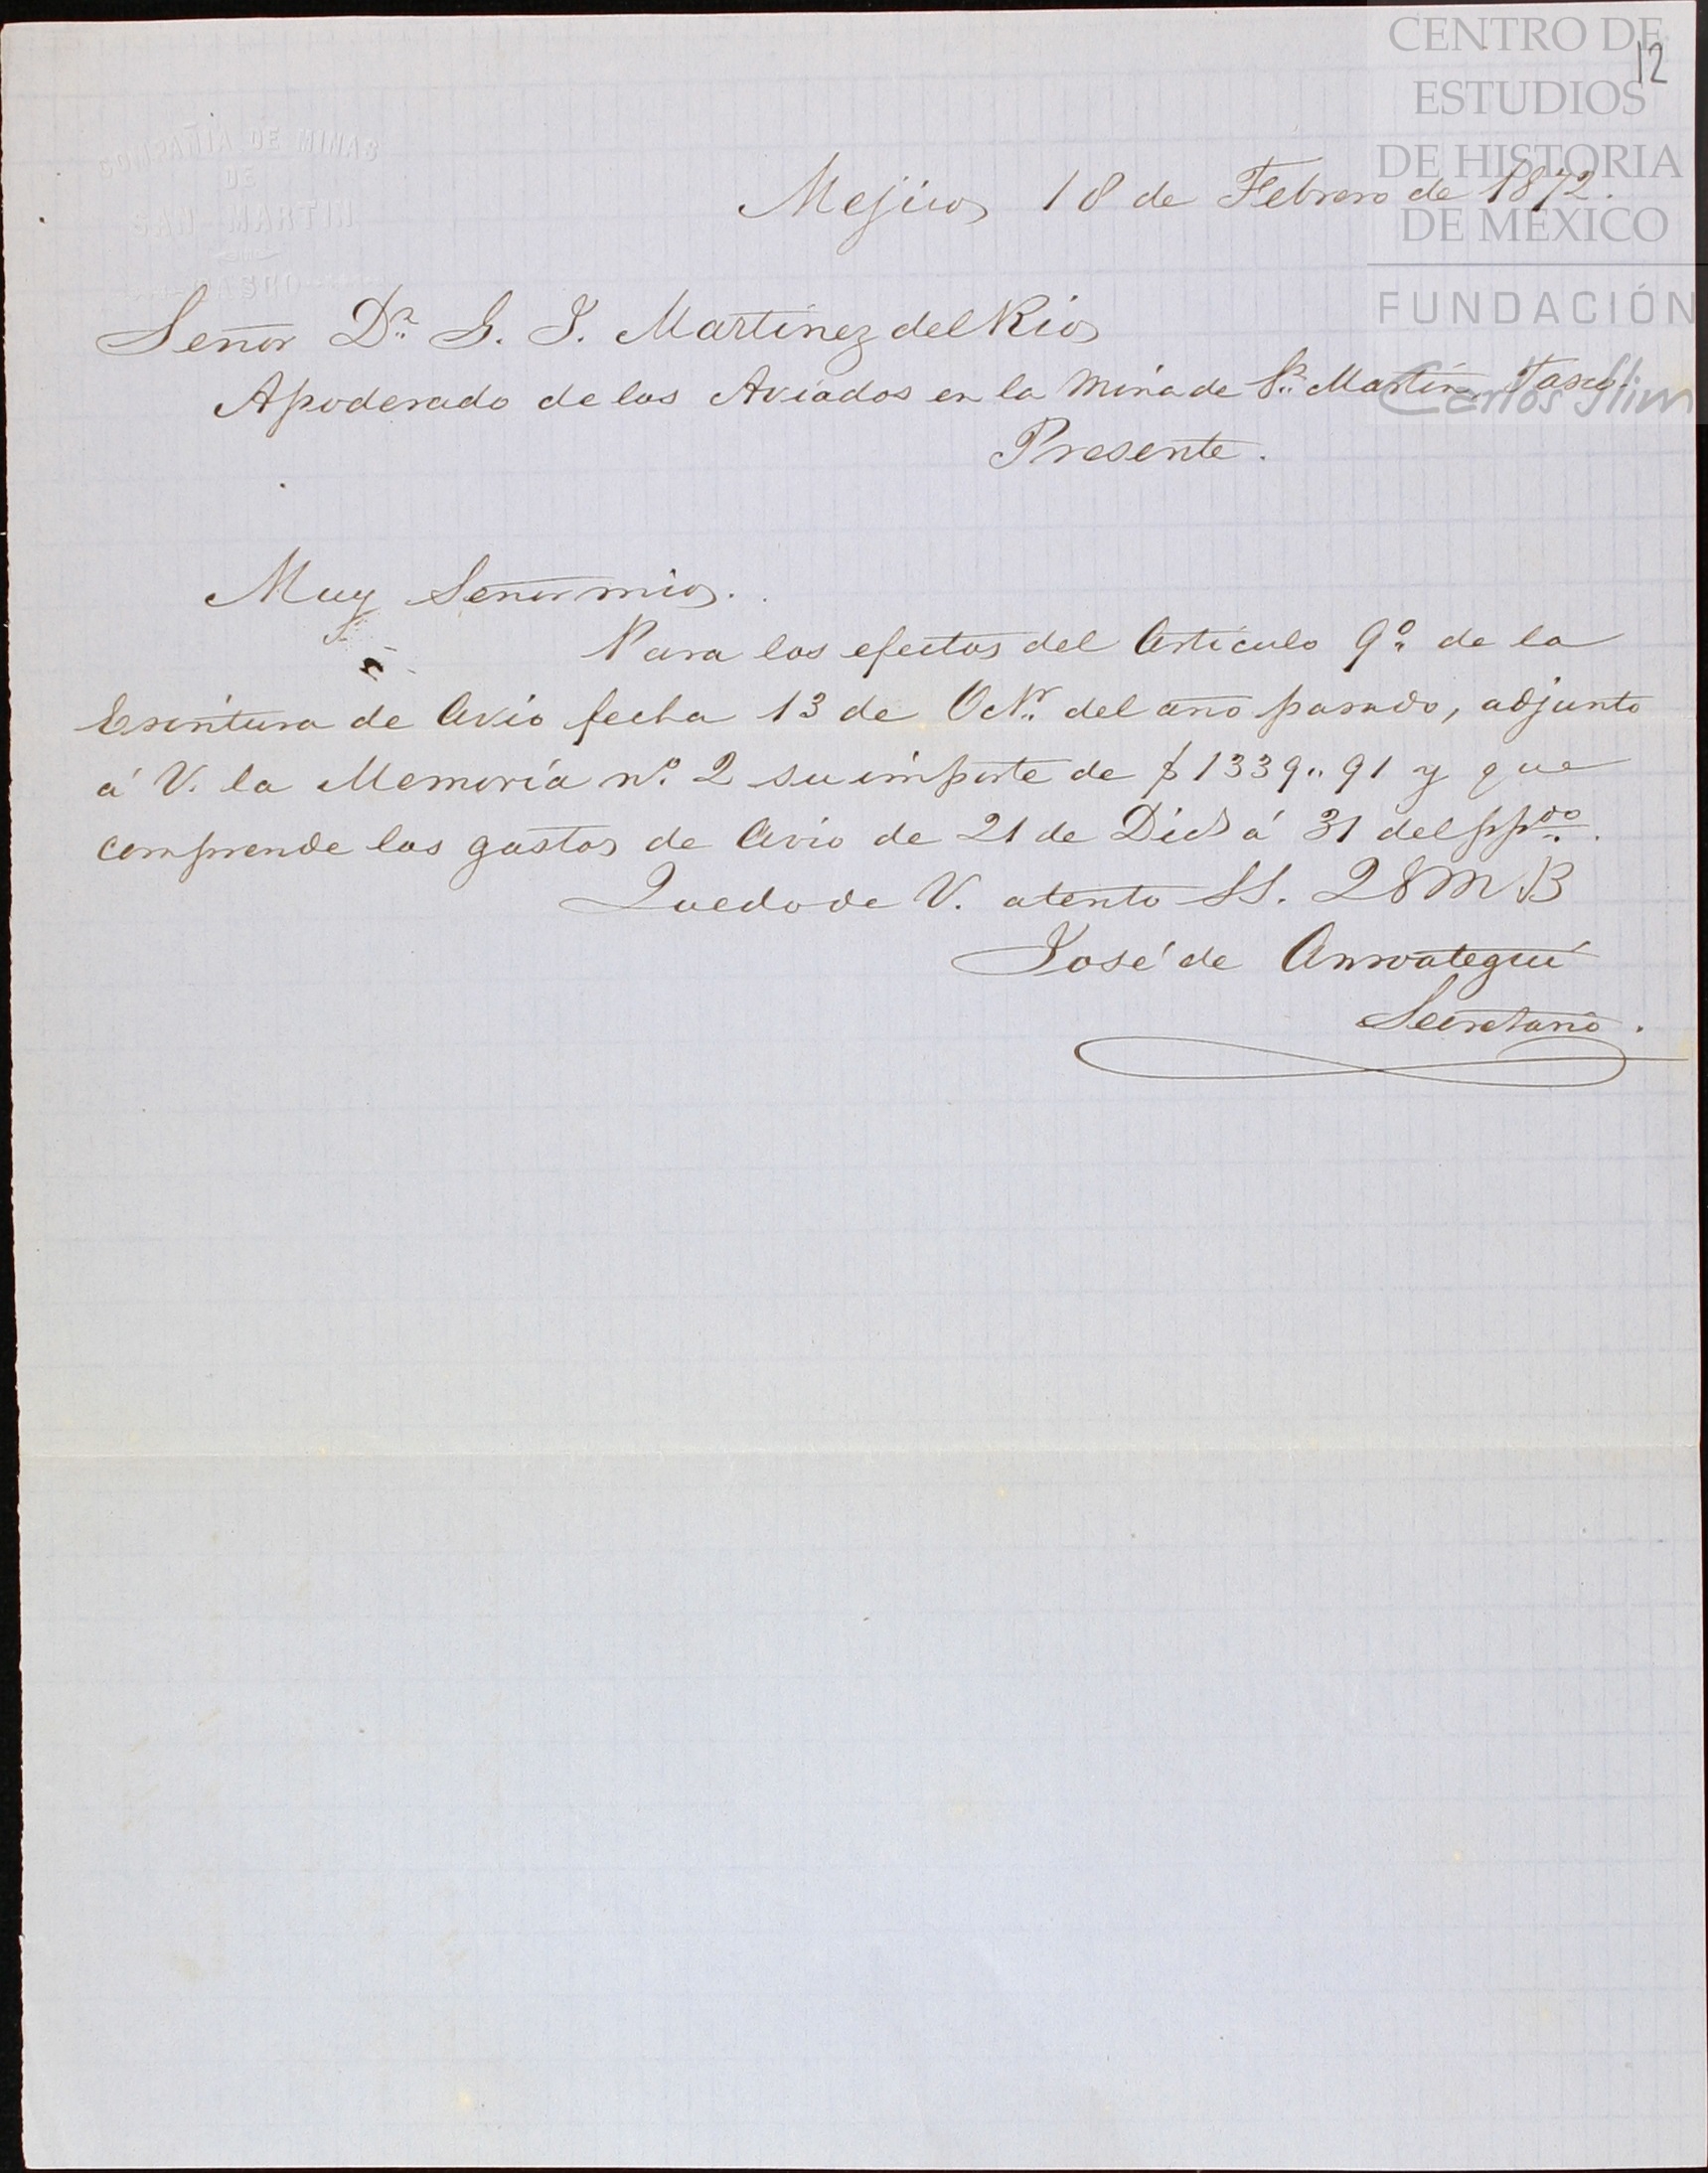 CENTRO DE
ESTUDIOS
DE HISTORIA
DE MÉXICO
FUNDACIÓN
Carlos Slim
12
COMPAÑIA DE MINAS
DE
SAN-MARTIN
Mejico, 18 de Febrero de 1872.
Señor Dn. G. J. Martinez del Rio,
Apoderado de los Aviados en la mina de Sn. Martin, Tasco.
Presente.
Muy Señor mio,
Para los efectos del Articulo 9º de la
Escritura de Avio fecha 13 de Octr. del año pasado, adjunto
á V. la Memoria nº. 2 su importe de $1339,,91 y que
comprende los gastos de Avio de 21 de Dice á 31 del ppdo.
Quedo de V. atento SS. Q B M B
José de Anrategui
Secretario.